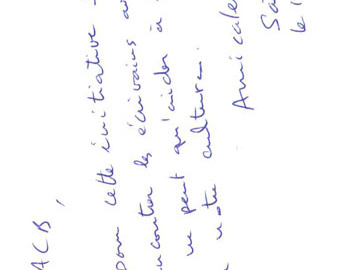 ACB,
pour cette initiative
rencontrer les écrivains
ne peut qu'aider à
notre culture.
Amicale
le